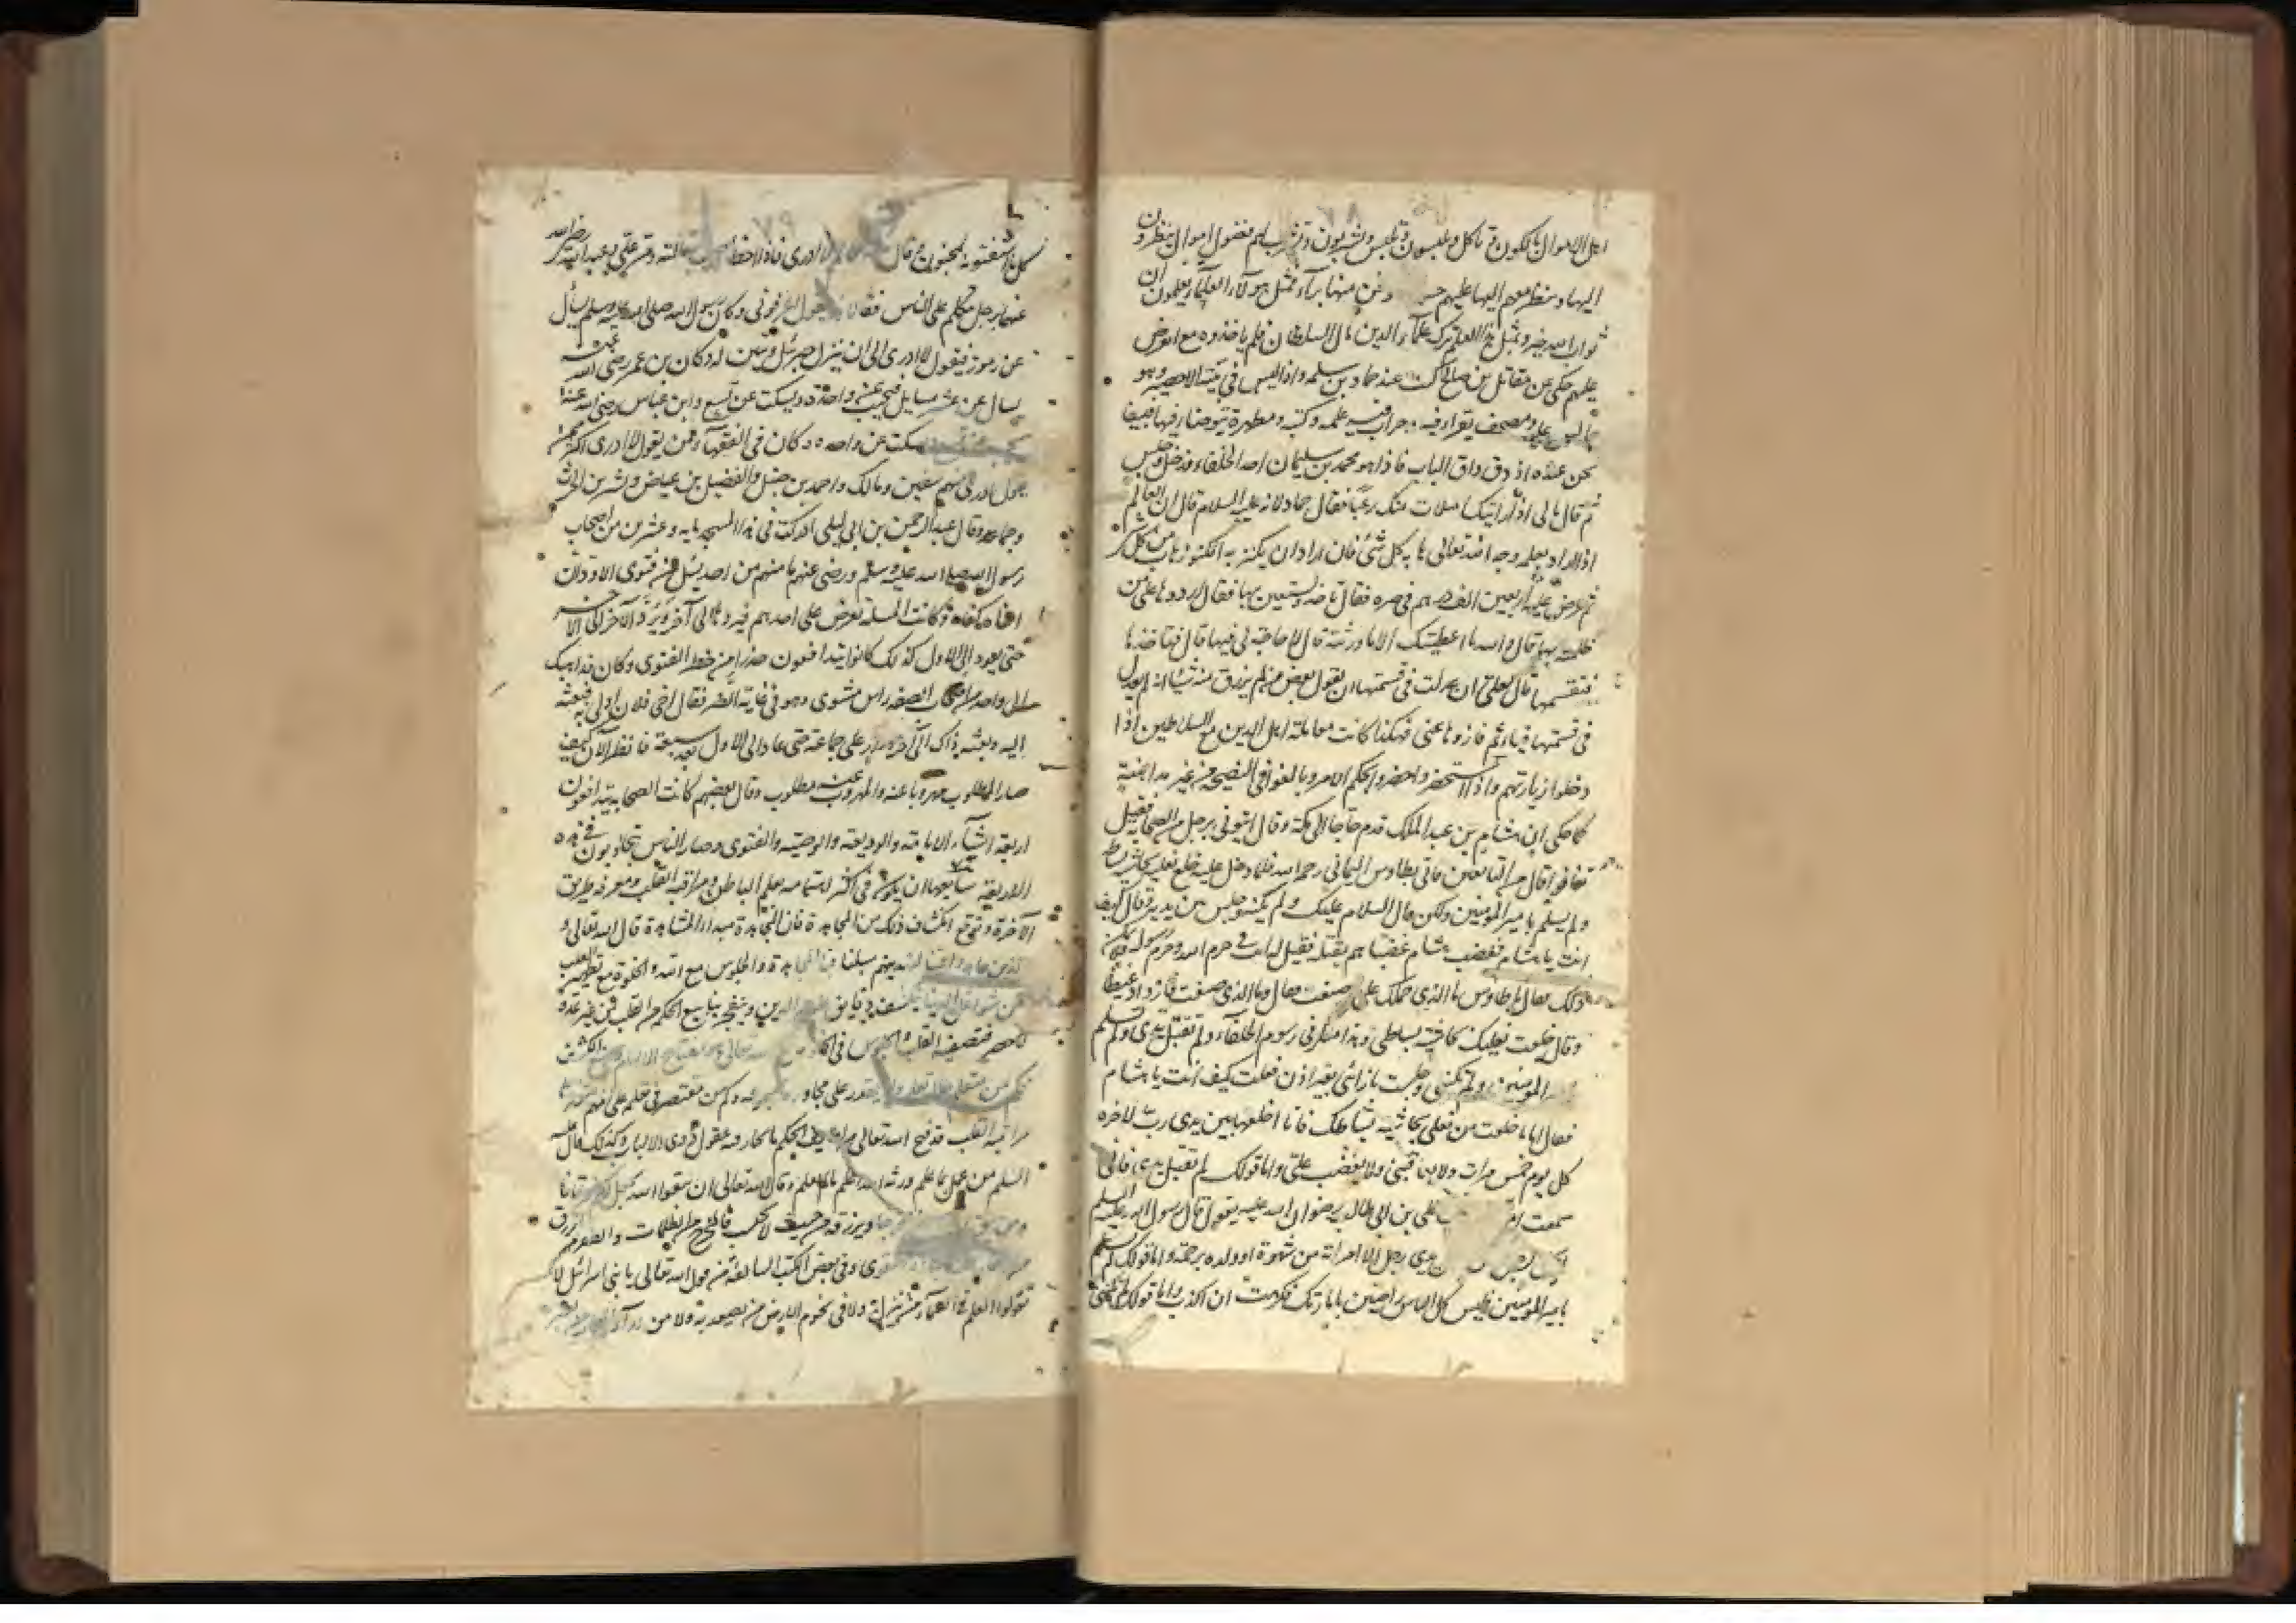 اهل الاموال ياكلون و ناكل ويلبسون ونلبس ويشربون ونشرب لهم فضول اموال ينظرون
اليها وننظر معهم اليها عليهم ونحن منها برآء فمثل هولاء العلمآء يعلمون ان
ثواب الله خير وبمثل هذا العلم ترك علمآء الدين مال السلطان فلم ياخذوه مع العرض
عليهم حكى عن مقاتل بن صالح كنت عند حماد بن سلمه واذا ليس في بيته الا حصير وهو
جالس عليه ومصحف يقراء فيه وجراب فيه علمه وكتبه ومطهرة يتوضاء فيها فبينا
نحن عنده اذ دق داق الباب فاذا هو محمد بن سليمان احد الخلفاء فدخل وجلس
ثم قال مالى اذا رايتك امتلات منك رعبا فقال حماد لانه عليه السلام قال ان العالم
اذا اراد بعلمه وجه الله تعالى هابه كل شئ فان اراد ان يكنز به الكنوز هاب من كل شئ
ثم عرض عليه اربعين الف درهم في صره فقال تاخذ وتستعين بها فقال ارددها على من
ظلمته بها قال والله ما اعطيتك الا ما ورثته قال لا حاجة لى فيها قال فتاخذها
فتقسمها قال لعلى ان عدلت في قسمتها ان يقول بعض من لم يرزق منه شيا انه لم يعدل
في قسمتها فياثم فازوها عنى فهكذا كانت معاملة اهل الدين مع السلاطين اذا
دخلوا زيارتهم واذا استحضروا حضروا لحكم الامر وبالغوا في النصيحة من غير مداهنة
كما حكى ان هشام بن عبد الملك قدم حاجا الى مكة وقال ايتونى برجل من الصحابة فقيل
تفانوا قال من التابعين فاتى بطاوس اليمانى رحمه الله فلما دخل عليه خلع نعليه بحاشية بساطه
ولم يسلم بامير المومنين ولكن قال السلام عليك ولم يكنه وجلس بين يديه وقال كيف
انت يا هشام فغضب هشام غضبا هم بقتله فقيل له انت في حرم الله وحرم رسوله
ذلك فقال يا طاوس ما الذى حملك على صنعت فقال وما الذى صنعت فازداد غيظا
وقال خلعت نعليك بحاشية بساطى وهذا منكر في رسوم الخلفاء ولم تقبل يدى ولم تسلم
المومنين ولم تكننى وجلست بازائى بغير اذن وقلت كيف انت يا هشام
فقال اما ما خلعت من نعلى بحاشية بساطك فانا اخلعها بين يدى رب الاخره
كل يوم خمس مرات ولا يعاقبنى ولا يغضب على واما قولك لم تقبل يدى فانى
سمعت على بن ابى طالب رضوان الله عليه يقول قال رسول الله عليه السلم
يدى رجل الا امراته من شهوة او ولده برحمة واما قولك لم تسلم
بامير المومنين فليس كل الناس راضين بامارتك فكرهت ان اكذب واما قولك لم تكننى
كل ما استفتوه لمجنون وقال لا ادرى فاذا اخطا مقالته ومر على وعبد الله رضى الله
عنهما برجل يتكلم على الناس فقالا يقول اعرفونى وكان رسول الله صلى الله عليه وسلم يسأل
عن رموز فيقول لا ادرى الى ان ينزل جبرئيل ويبين له وكان بن عمر رضى الله عنه
يسال عن عشر مسايل فيجيب عن واحدة ويسكت عن تسع وابن عباس رضى الله عنه
يجيب عن تسع ويسكت عن واحده وكان في الفقهآء من يقول لا ادرى اكثر من
يقول ادرى منهم سفين ومالك واحمد بن حنبل والفضيل بن عياض وبشر بن الحرث
وجماعه وقال عبد الرحمن بن ابى ليلى ادركت في هذا المسجد مايه وعشرين من اصحاب
رسول الله صلى الله عليه وسلم ورضى عنهم ما منهم من احد يسئل عن فتوى الا ود ان
اخاه كفاه وكانت المسلة تعرض على احدهم فيردها الى آخر ويرد الآخر الى الآخر
حتى يعود الى الاول كذلك كانوا يتدافعون حذرا من خطر الفتوى وكان قد اهدى
الى واحد من اصحاب الصفه راس مشوى وهو في غاية الضر فقال اخى فلان اولى به فبعثه
اليه وبعثه ذاك الى آخر ودار على جماعة حتى عاد الى الاول بعد سبعة فانظر الان كيف
صار المطلوب مهروبا عنه والمهروب عنه مطلوب وقال بعضهم كانت الصحابه يتدافعون
اربعة اشيآء الامامة والوديعة والوصية والفتوى وصار الناس يتجاذبون في هذه
الاربعة سابعها ان يكون في اكثر اهتمامه بعلم الباطن ومراقبة القلب ومعرفه طريق
الآخرة وتوقع انكشاف ذلك من المجاهدة فان المجاهدة مبداء المشاهدة قال الله تعالى و
الذين جاهدوا فينا لنهدينهم سبلنا فبالمجاهدة والجلوس مع الله والخلوة مع تطهير القلب
عن شواغل الدنيا ينكشف دقايق علوم الدين ويتفجر ينابيع الحكم من القلب من غير عدد
لا حصر فتصفية القلب والجلوس في الخلوة مع الله تعالى مفتاح الالهام ومنبع الكشف
فكم من متعلم طال تعلمه ولم يقدر على مجاوزة وكم من مقتصر في تعلم على المهم
مراقبة القلب قد فتح الله تعالى من لطايف الحكم ما تحار فيه عقول ذوى الالباب وكذلك قال عليه
السلم من عمل بما علم ورثه الله علم ما لم يعلم وقال الله تعالى ان تتقوا الله يجعل لكم فرقانا
ومن يتق ويرزقه من حيث لا يحتسب فالمخرج من الظلمات والعلوم الرزق
التقوى وفى بعض الكتب السالفة من قول الله تعالى يا بنى اسرائيل لا
تقولوا العلم في السمآء من ينزل به ولا في تخوم الارض من يصعد به ولا من ورآء